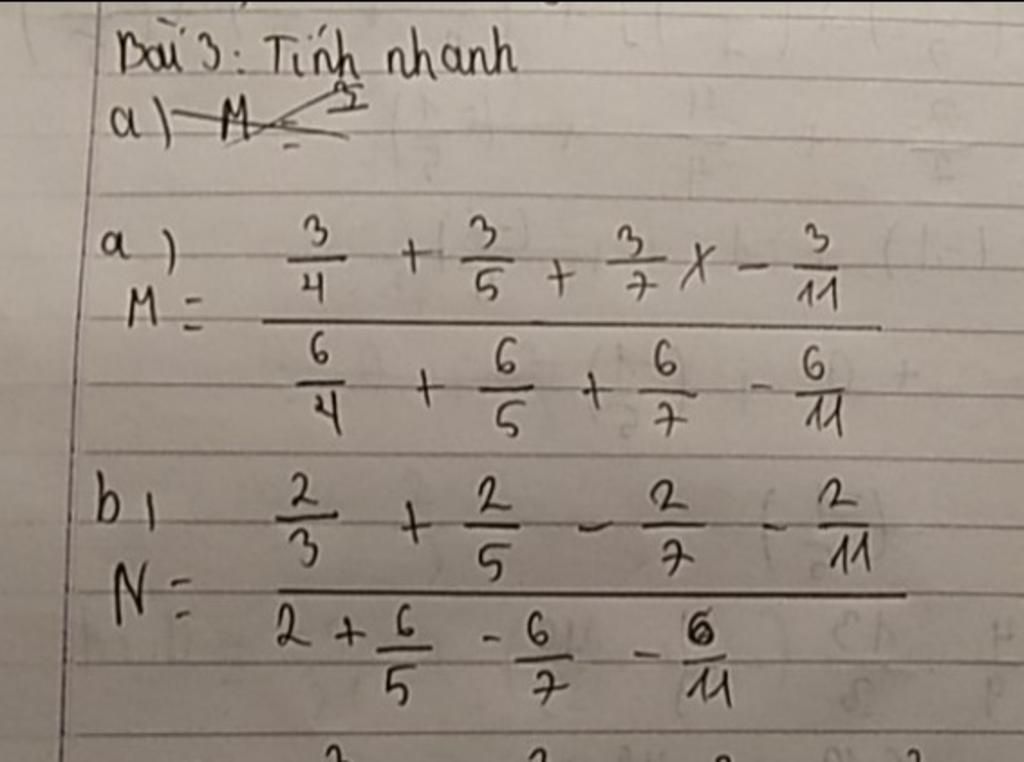 Bài 3: Tính nhanh
a) M =
a)
3/4 + 3/5 + 3/7 x - 3/11
M =
6/4 + 6/5 + 6/7 - 6/11
b)
2/3 + 2/5 - 2/7 - 2/11
N =
2 + 6/5 - 6/7 - 6/11